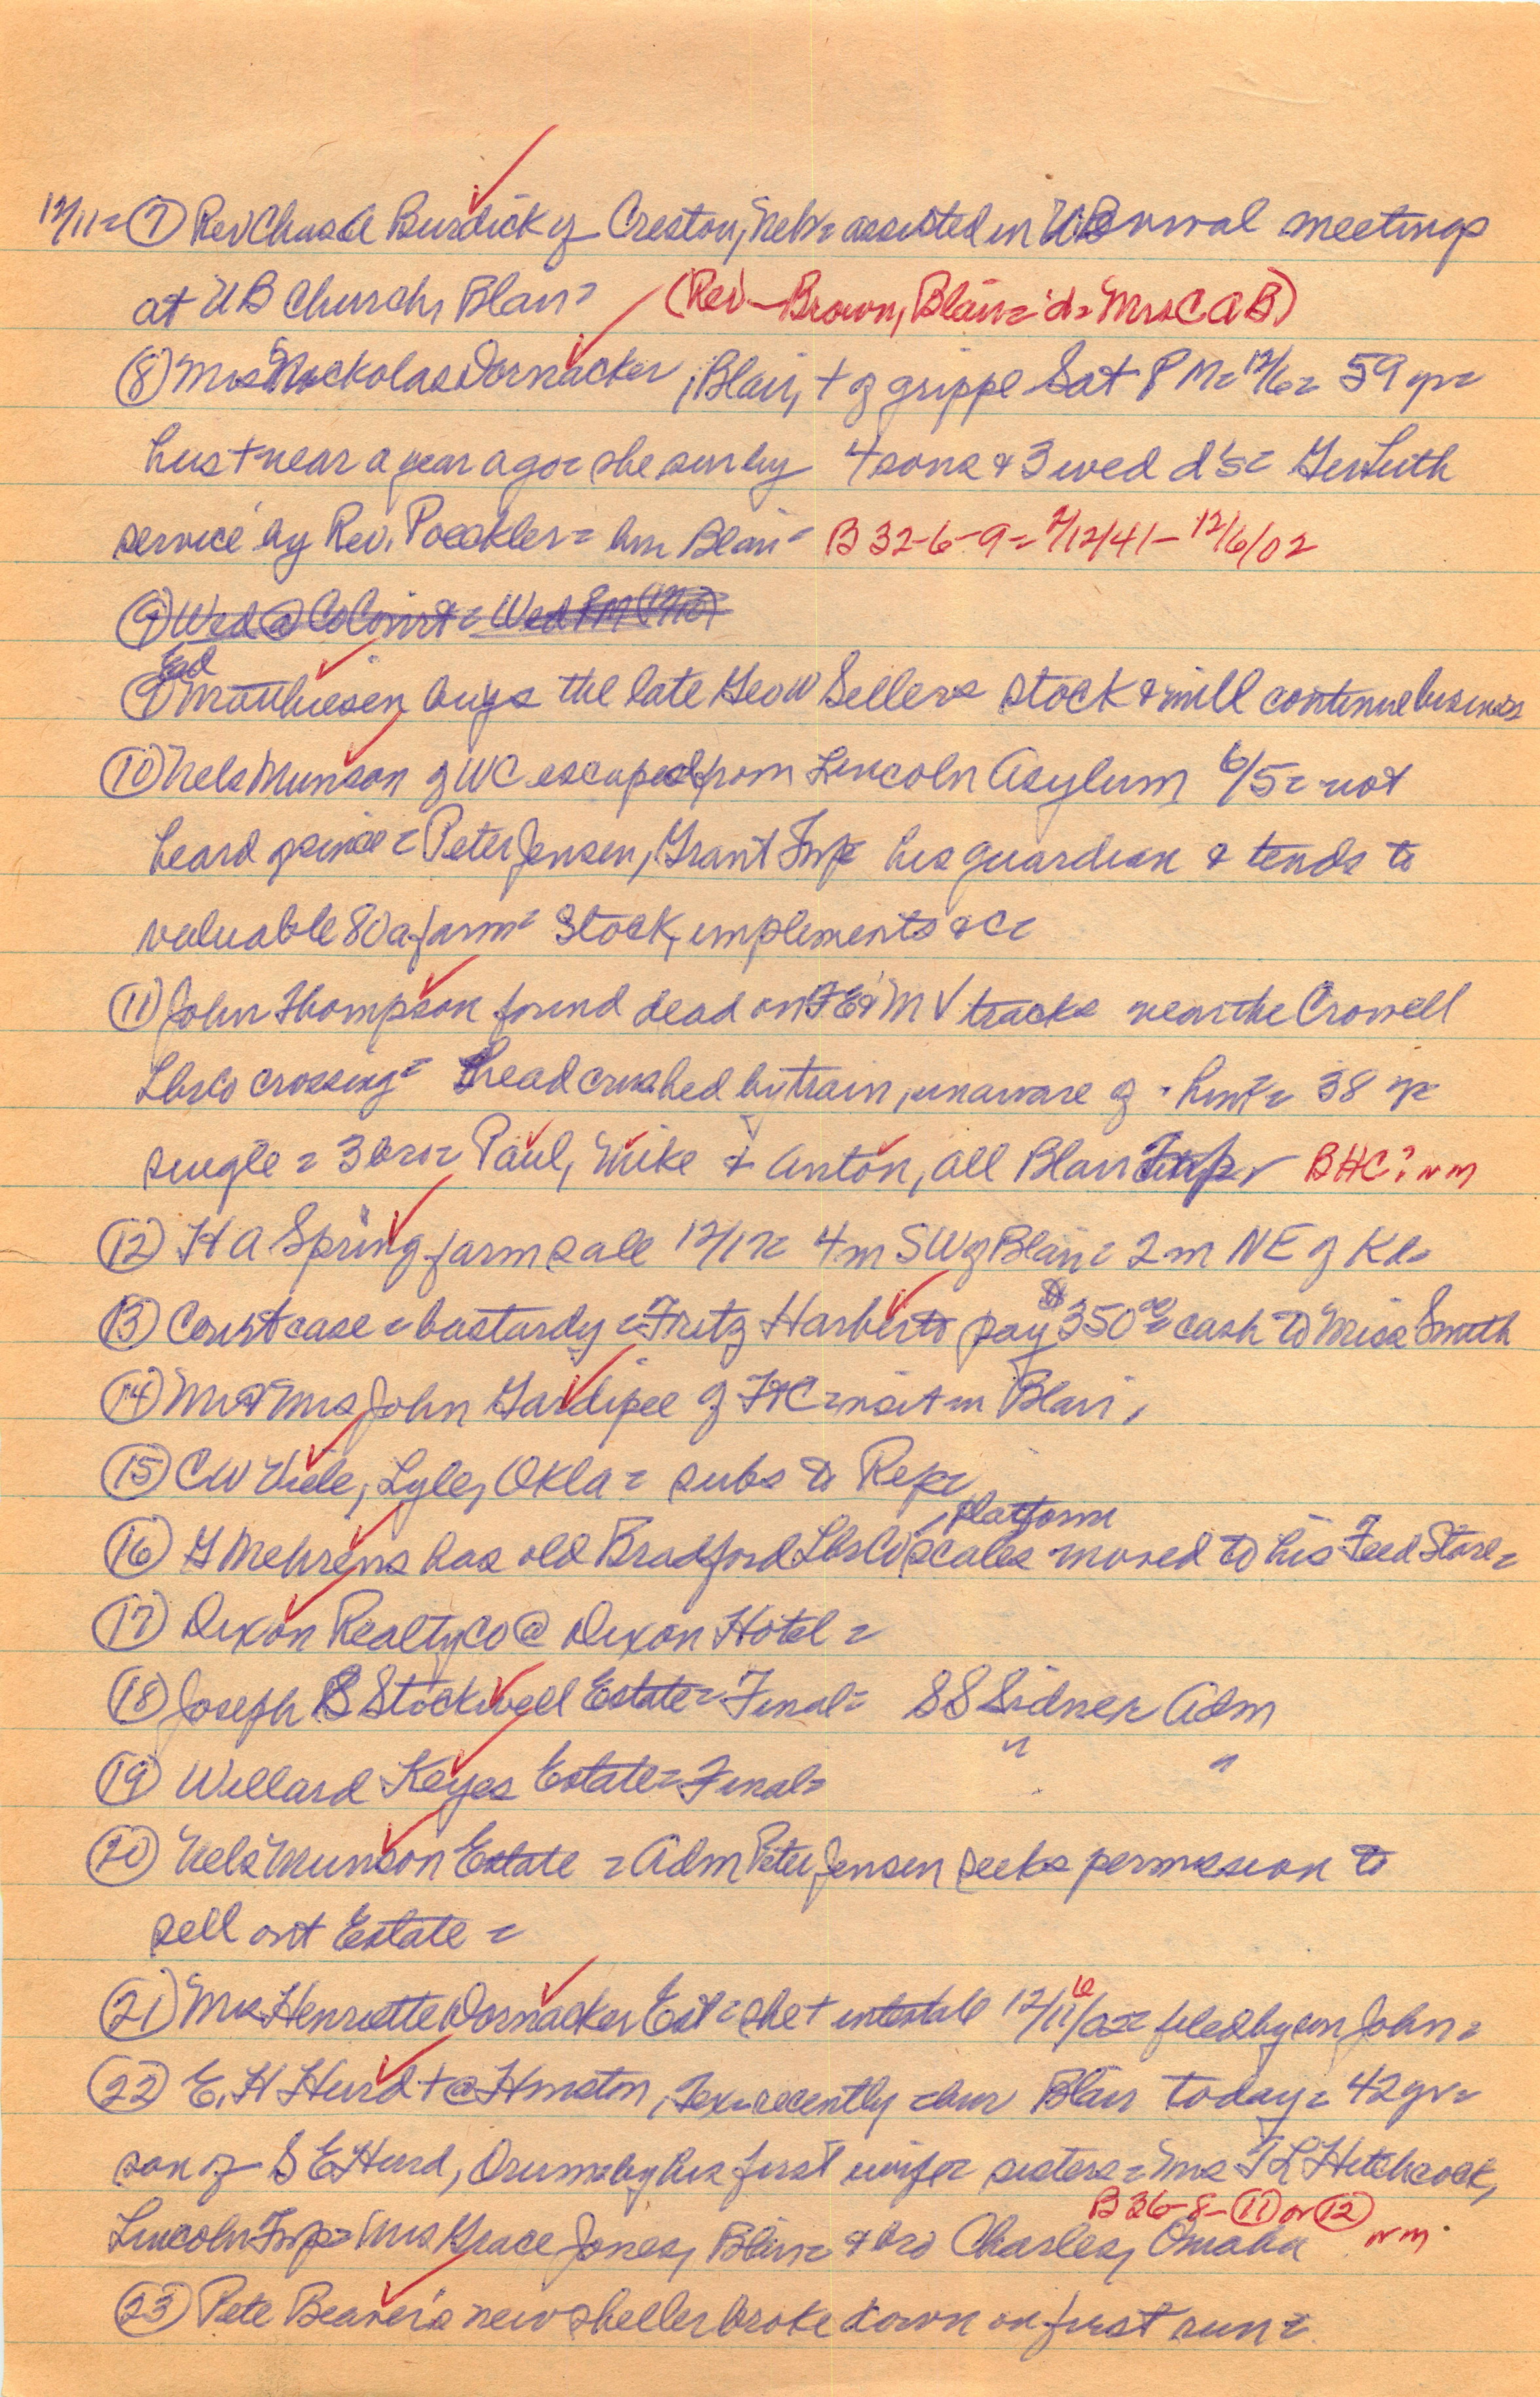 12/11= (7) Rev Chas A Burdick of Creston, Neb= assisted in revival meetings
at UB Church, Blair= (Rev — Brown, Blair= d= Mrs C A B)
(8) Mrs Nickolas Dornacker, Blair, + of grippe Sat PM= 12/6= 59 yr=
hus + near a year ago= she sur by 4 sons & 3 wed d's= Ger Luth
service by Rev. Poeckler= bur Blair= B 32-6-9= 7/12/41 - 12/6/02
(9) Wed @ Co Court= Wed PM
(9) Earl Matthiesen buys the late Geo W Sellers stock & will continue business
(10) Nels Munson of WC escaped from Lincoln Asylum 6/5= not
heard of since= Peter Jensen, Grant Twp his guardian & tends to
valuable 80a farm= Stock, implements &C=
(11) John Thompson found dead on FE & MV tracks near the Crowell
Lbr Co crossing= head crushed by train, unaware of him= 38 yr=
single= 3 bro= Paul, Mike & Anton, all Blair Twp BHC? nm
(12) H A Spring farm sale 12/17= 4m SW of Blair= 2m NE of Kd=
(13) Court case= bastardy= Fritz Harberts pay $350.00= cash to Miss Smith
(14) Mr & Mrs John Gardipee of FtC= visit in Blair,
(15) CW Viele, Lyle, Okla= subs to Rep=
(16) G Mehrens has old Bradford Lbr Co platform scales moved to his Feed Store=
(17) Dixon Realty Co @ Dixon Hotel=
(18) Joseph S Stockwell Estate= Final= SS Sidner Adm
(19) Willard Keyes Estate= Final= " "
(20) Nels Munson Estate= Adm Peter Jensen seeks permission to
sell out Estate=
(21) Mrs Henriette Dornacker Est= she + intestate 12/6/02= filed by son John=
(22) E. H Hurd + @ Houston, Tex= recently= bur Blair today= 42 yr=
son of S E Hurd, Orum= by his first wife= sisters= Mrs T L Hitchcock,
Lincoln Twp= Mrs Grace Jones, Blair= & bro Charles, Omaha B 36-8-(11) or (12) nm
(23) Pete Beaver's new sheller broke down on first run=